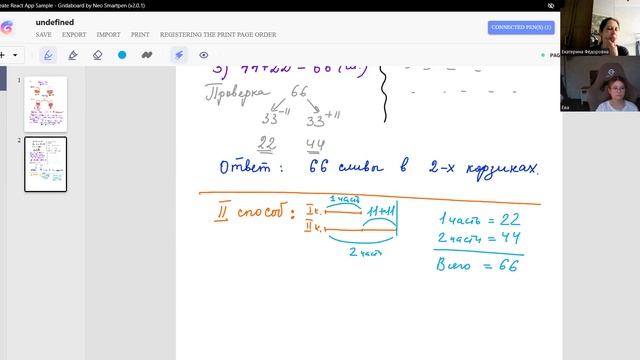 eate React App Sample - Gridaboard by Neo Smartpen (v2.0.1)
undefined
SAVE EXPORT IMPORT PRINT REGISTERING THE PRINT PAGE ORDER
CONNECTED PEN(S) (1)
PAG
Екатерина Фёдоровна
Ева
1
2
3) 44+22 = 66 (ш.)
Проверка 66
33 -11 33 +11
22 44
Ответ: 66 сливы в 2-х корзинах.
II способ:
1 часть
I к. 11+11
II к.
2 часть
1 часть = 22
2 части = 44
Всего = 66